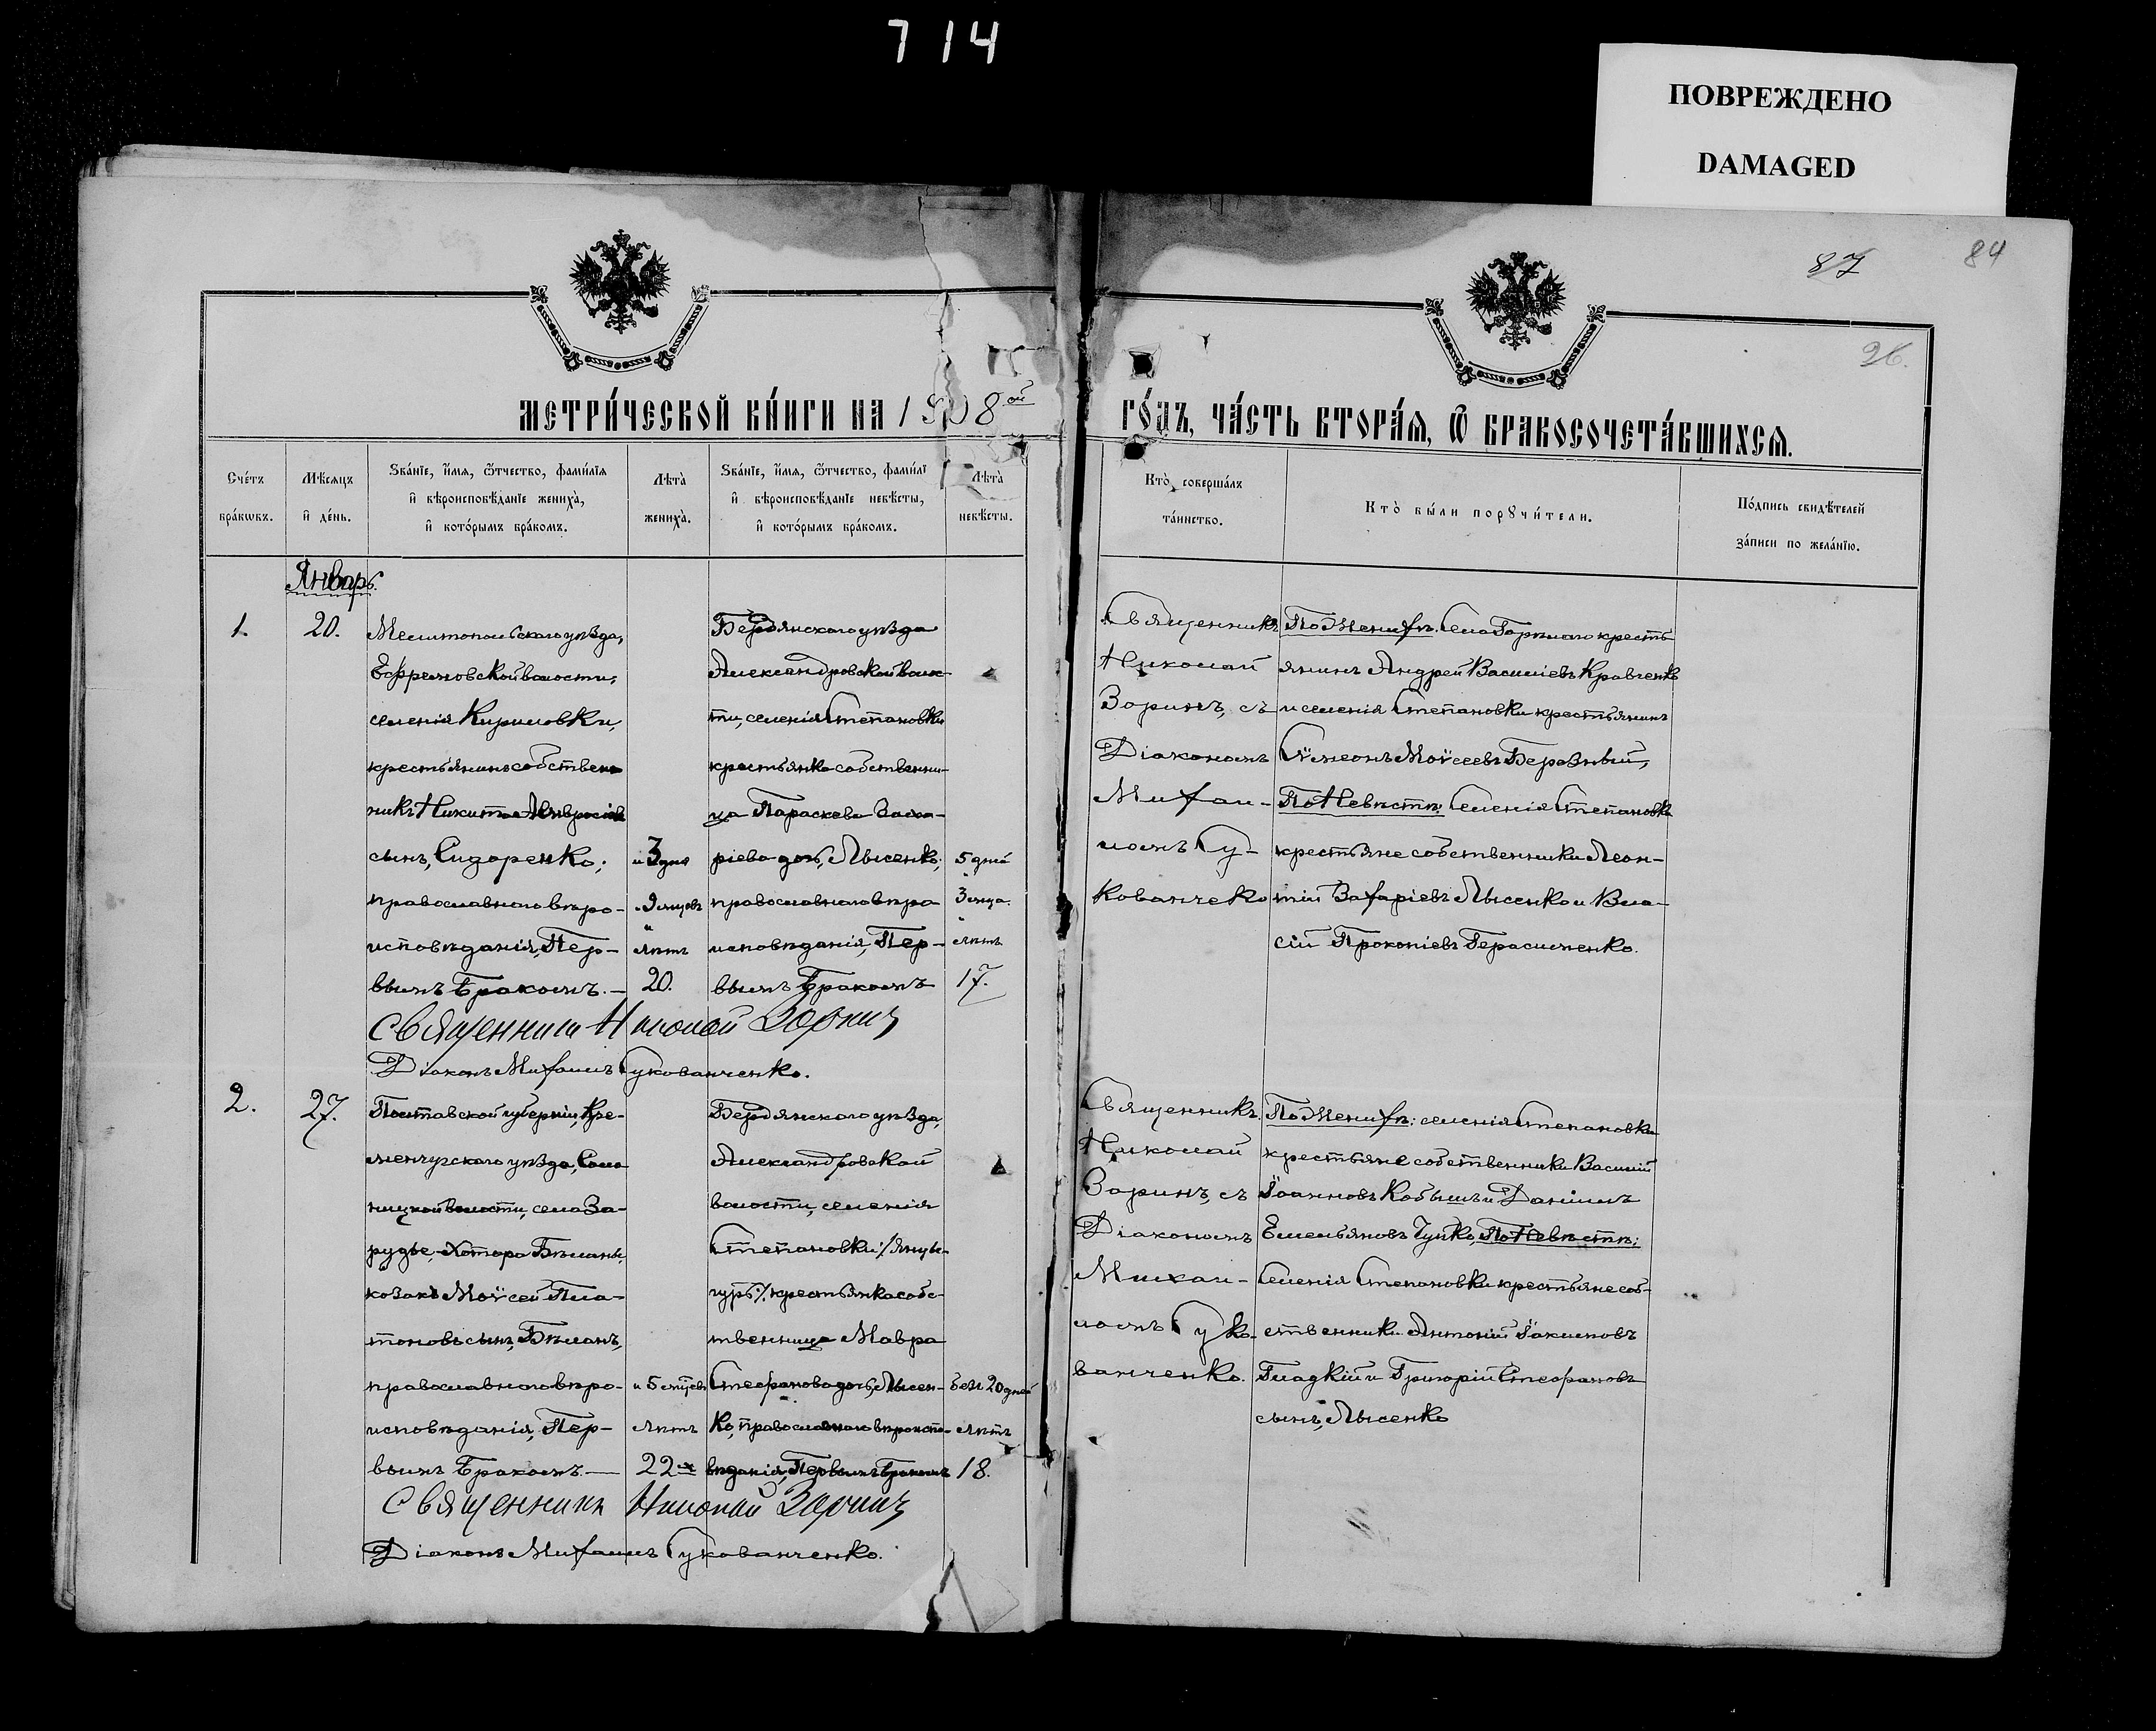 714
ПОВРЕЖДЕНО
DAMAGED
87
84
26.
МЕТРИ́ЧЕСКОЙ КНИ́ГИ НА 1908ой
ГО́ДЪ, ЧА́СТЬ ВТОРА́Я, Ѿ БРАКОСОЧЕТА́ВШИХСЯ.
Сче́тъ
бра́кѡвъ.
Мѣ́сяцъ
и҆ де́нь.
Ѕва́нїе, и҆́мя, ѻ҆́тчество, фами́лїя
и҆ вѣроисповѣ́данїе жениха̀,
и҆ кото́рымъ бра́комъ.
Лѣта̀
жениха̀.
Ѕва́нїе, и҆́мя, ѻ҆́тчество, фами́лї
и҆ вѣроисповѣ́данїе невѣ́сты,
и҆ кото́рымъ бра́комъ.
Лѣта̀
невѣ́сты.
Кто̀ соверша́лъ
та́инство.
Кто̀ бы́ли порꙋчи́тели.
По́дпись свидѣ́телей
за́писи по жела́нїю.
Январь.
1.
20.
Мелитопольскаго уѣзда,
Ефремовской волости,
селенія Кириловки,
крестьянинъ собствен
никъ Никита Амвросіевъ
сынъ, Сидоренко;
православнаго вѣро-
исповѣданія, Пер-
вымъ бракомъ.—
и 3 дня
9 мцевъ
и
лѣтъ
20.
Бердянскаго уѣзда
Александровской волос-
ти, селенія Степановки
крестьянка собственни-
ца Параскева Заха-
ріева дочь, Лысенко;
православнаго вѣро
исповѣданія, Пер-
вымъ бракомъ
5 дней
3 мца.
и
лѣтъ
17.
Священникъ
Николай
Заринъ, съ
Діакономъ
Михаи-
ломъ Су-
кованченко
По Женихѣ: Села Горѣлаго кресть
янинъ Андрей Василіевъ Кравченко
и селенія Степановки крестьянинъ
Сѵмеонъ Моѵсеевъ Березный,
По Невѣстѣ: Селенія Степановки
крестьяне собственники Леон-
тій Захаріевъ Лысенко и Вла-
сій Прокопіевъ Герасименко.
Священникъ Николай Заринъ
Діаконъ Михаилъ Сукованченко.
2.
27.
Полтавской губерніи, Кре-
менчугскаго уѣзда,
волости, села За-
рудье, хутора Бѣланы,
козакъ Моѵсей Пла-
тоновъ сынъ, Бѣланъ,
православнаго вѣро-
исповѣданія, Пер-
вымъ бракомъ.—
и 5 мцевъ
лѣтъ
22
Бердянскаго уѣзда,
Александровской
волости, селенія
Степановки
крестьянка собс-
твенница Мавра
Стефанова дочь, Лысен-
ко, православнаго вѣроиспо-
вѣданія, Первымъ бракомъ
20 дней
лѣтъ
18.
Священникъ
Николай
Заринъ, съ
Діакономъ
Михаи-
ломъ Суко-
ванченко.
По Женихѣ: селенія Степановки
крестьяне собственники Василій
Іоанновъ Кобышъ и Даніилъ
Емельяновъ Чупко, По Невѣстѣ;
Селенія Степановки крестьяне соб-
ственники Антоній Іакимовъ
Гладкій и Григорій Стефановъ
сынъ, Лысенко
Священникъ Николай Заринъ
Діаконъ Михаилъ Сукованченко.